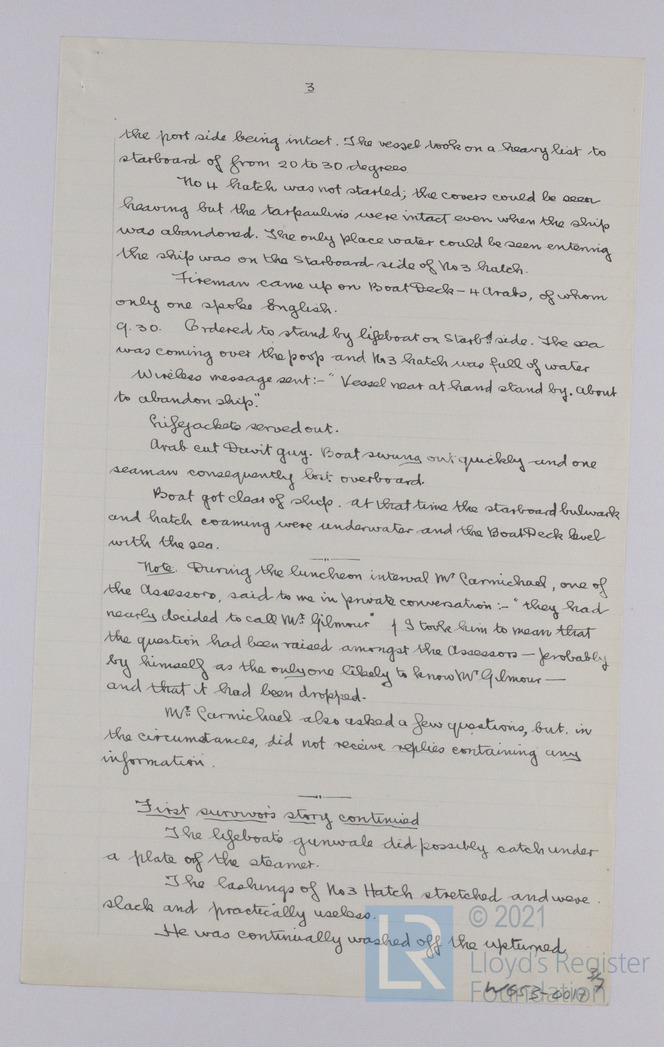 3
the port side being intact. The vessel took on a heavy list to
starboard of from 20 to 30 degrees
No 4 hatch was not started; the covers could be seen
heaving but the tarpaulins were intact even when the ship
was abandoned. The only place water could be seen entering
the ship was on the Starboard side of No 3 hatch.
Fireman came up on Boat Deck - 4 Arabs, of whom
only one spoke English.
9.30. Ordered to stand by lifeboat on Starbd side. The sea
was coming over the poop and No 3 hatch was full of water
Wireless message sent:- "Vessel near at hand stand by. About
to abandon ship."
Lifejackets served out.
Arab cut Davit guy. Boat swung out quickly and one
seaman consequently lost overboard.
Boat got clear of ship. At that time the starboard bulwark
and hatch coaming were underwater and the Boat Deck level
with the sea.
Note. During the luncheon interval Mr Carmichael, one of
the Assessors, said to me in private conversation:- "they had
nearly decided to call Mr Gilmour" I took him to mean that
the question had been raised amongst the Assessors - probably
by himself as the only one likely to know Mr Gilmour -
and that it had been dropped.
Mr Carmichael also asked a few questions, but in
the circumstances, did not receive replies containing any
information.
First survivor's story continued
The lifeboat's gunwale did possibly catch under
a plate of the steamer.
The lashings of No 3 Hatch stretched and were
slack and practically useless.
He was continually washed off the upturned
© 2021
Lloyd's Register
Foundation
W653-0017 3/7